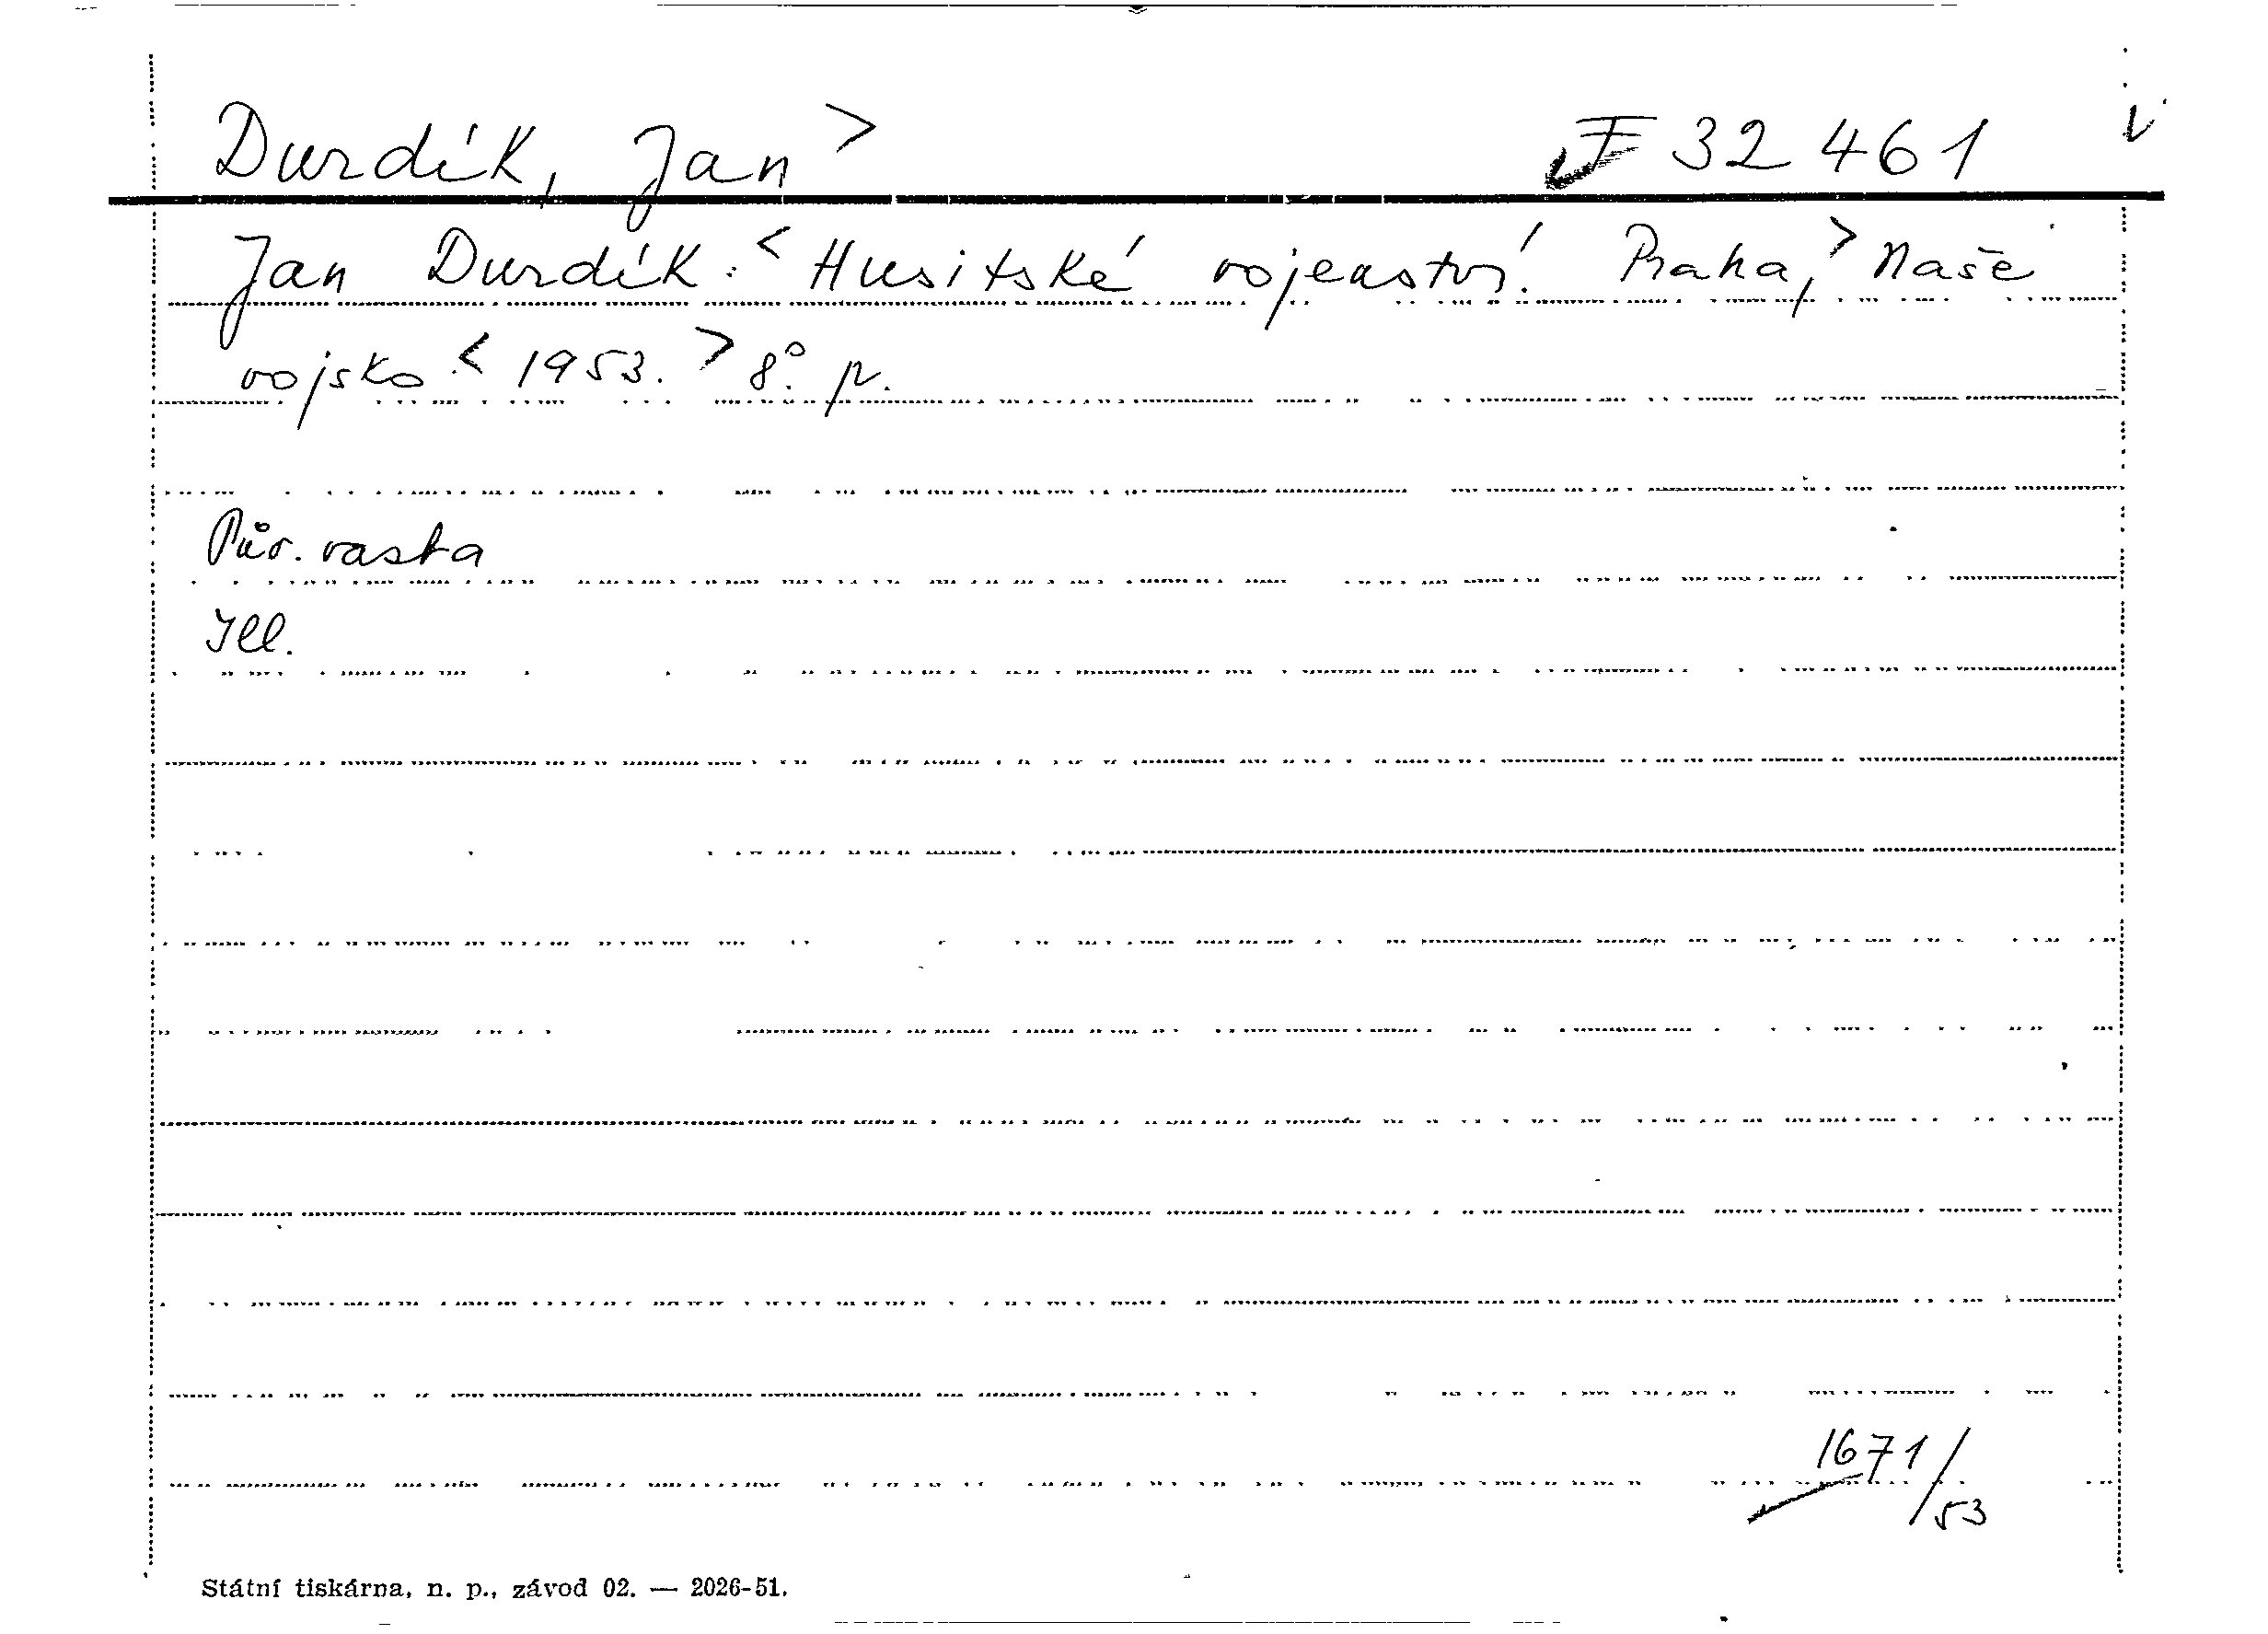 Durdík, Jan > F 32461
Jan Durdík: < Husitské vojenství. Praha, > Naše
vojsko < 1953. > 8°. p.
Pův. vazba
Ill.
1671/53
Státní tiskárna, n. p., závod 02. — 2026-51.